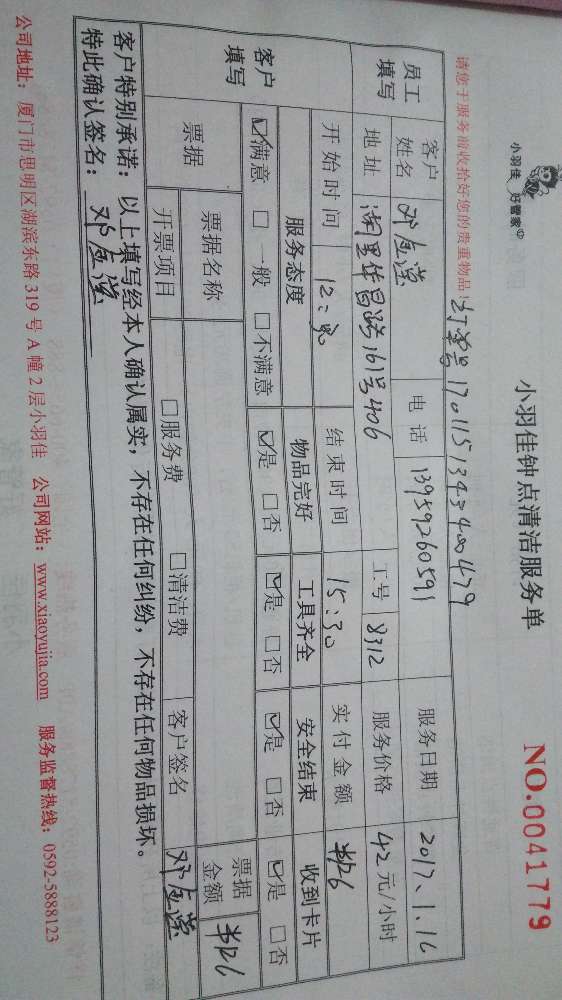 小羽佳 好管家
小羽佳钟点清洁服务单
NO.0041779
请您于服务前收拾好您的贵重物品!
1701151343400479
员工填写
客户姓名
电话 13959260591
服务日期 2017.1.16
地址 161号406
工号 8312
服务价格 42元/小时
客户填写
开始时间 12:30
结束时间 15:30
实付金额 ¥126
服务态度 物品完好 工具齐全 安全结束 收到卡片
☑满意 □一般 □不满意 ☑是 □否 ☑是 □否 ☑是 □否 ☑是 □否
票据
票据名称
票据金额 ¥126
开票项目 □服务费 □清洁费
客户签名
客户特别承诺:以上填写经本人确认属实,不存在任何纠纷,不存在任何物品损坏。
特此确认签名:
公司地址:厦门市思明区湖滨东路319号A幢2层小羽佳 公司网站:www.xiaoyujia.com 服务监督热线:0592-5888123